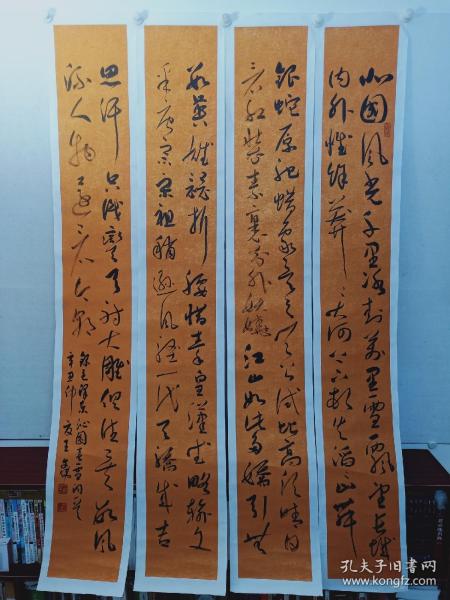 北国风光千里冰封万里雪飘望长城
内外惟余莽莽大河上下顿失滔滔山舞
银蛇原驰蜡象欲与天公试比高须晴日
看红装素裹分外妖娆江山如此多娇引无
数英雄竞折腰惜秦皇汉武略输文
采唐宗宋祖稍逊风骚一代天骄成吉
思汗只识弯弓射大雕俱往矣数风
流人物还看今朝
孔夫子旧书网
www.kongfz.com